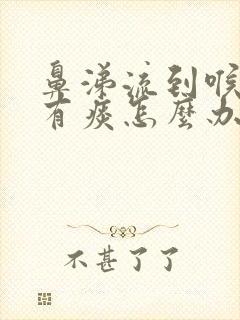 鼻涕流到喉
有痰怎麼办
不甚了了